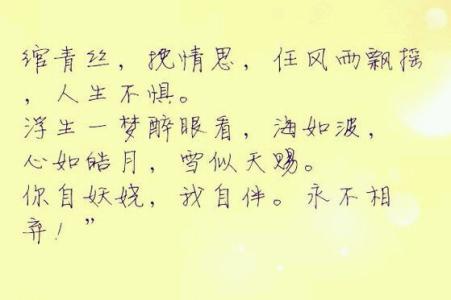 绾青丝，挽情思，任风雨飘摇
，人生不惧。
浮生一梦醉眼看，海如波，
心如皓月，雪似天赐。
你自妖娆，我自伴。永不相
弃！”